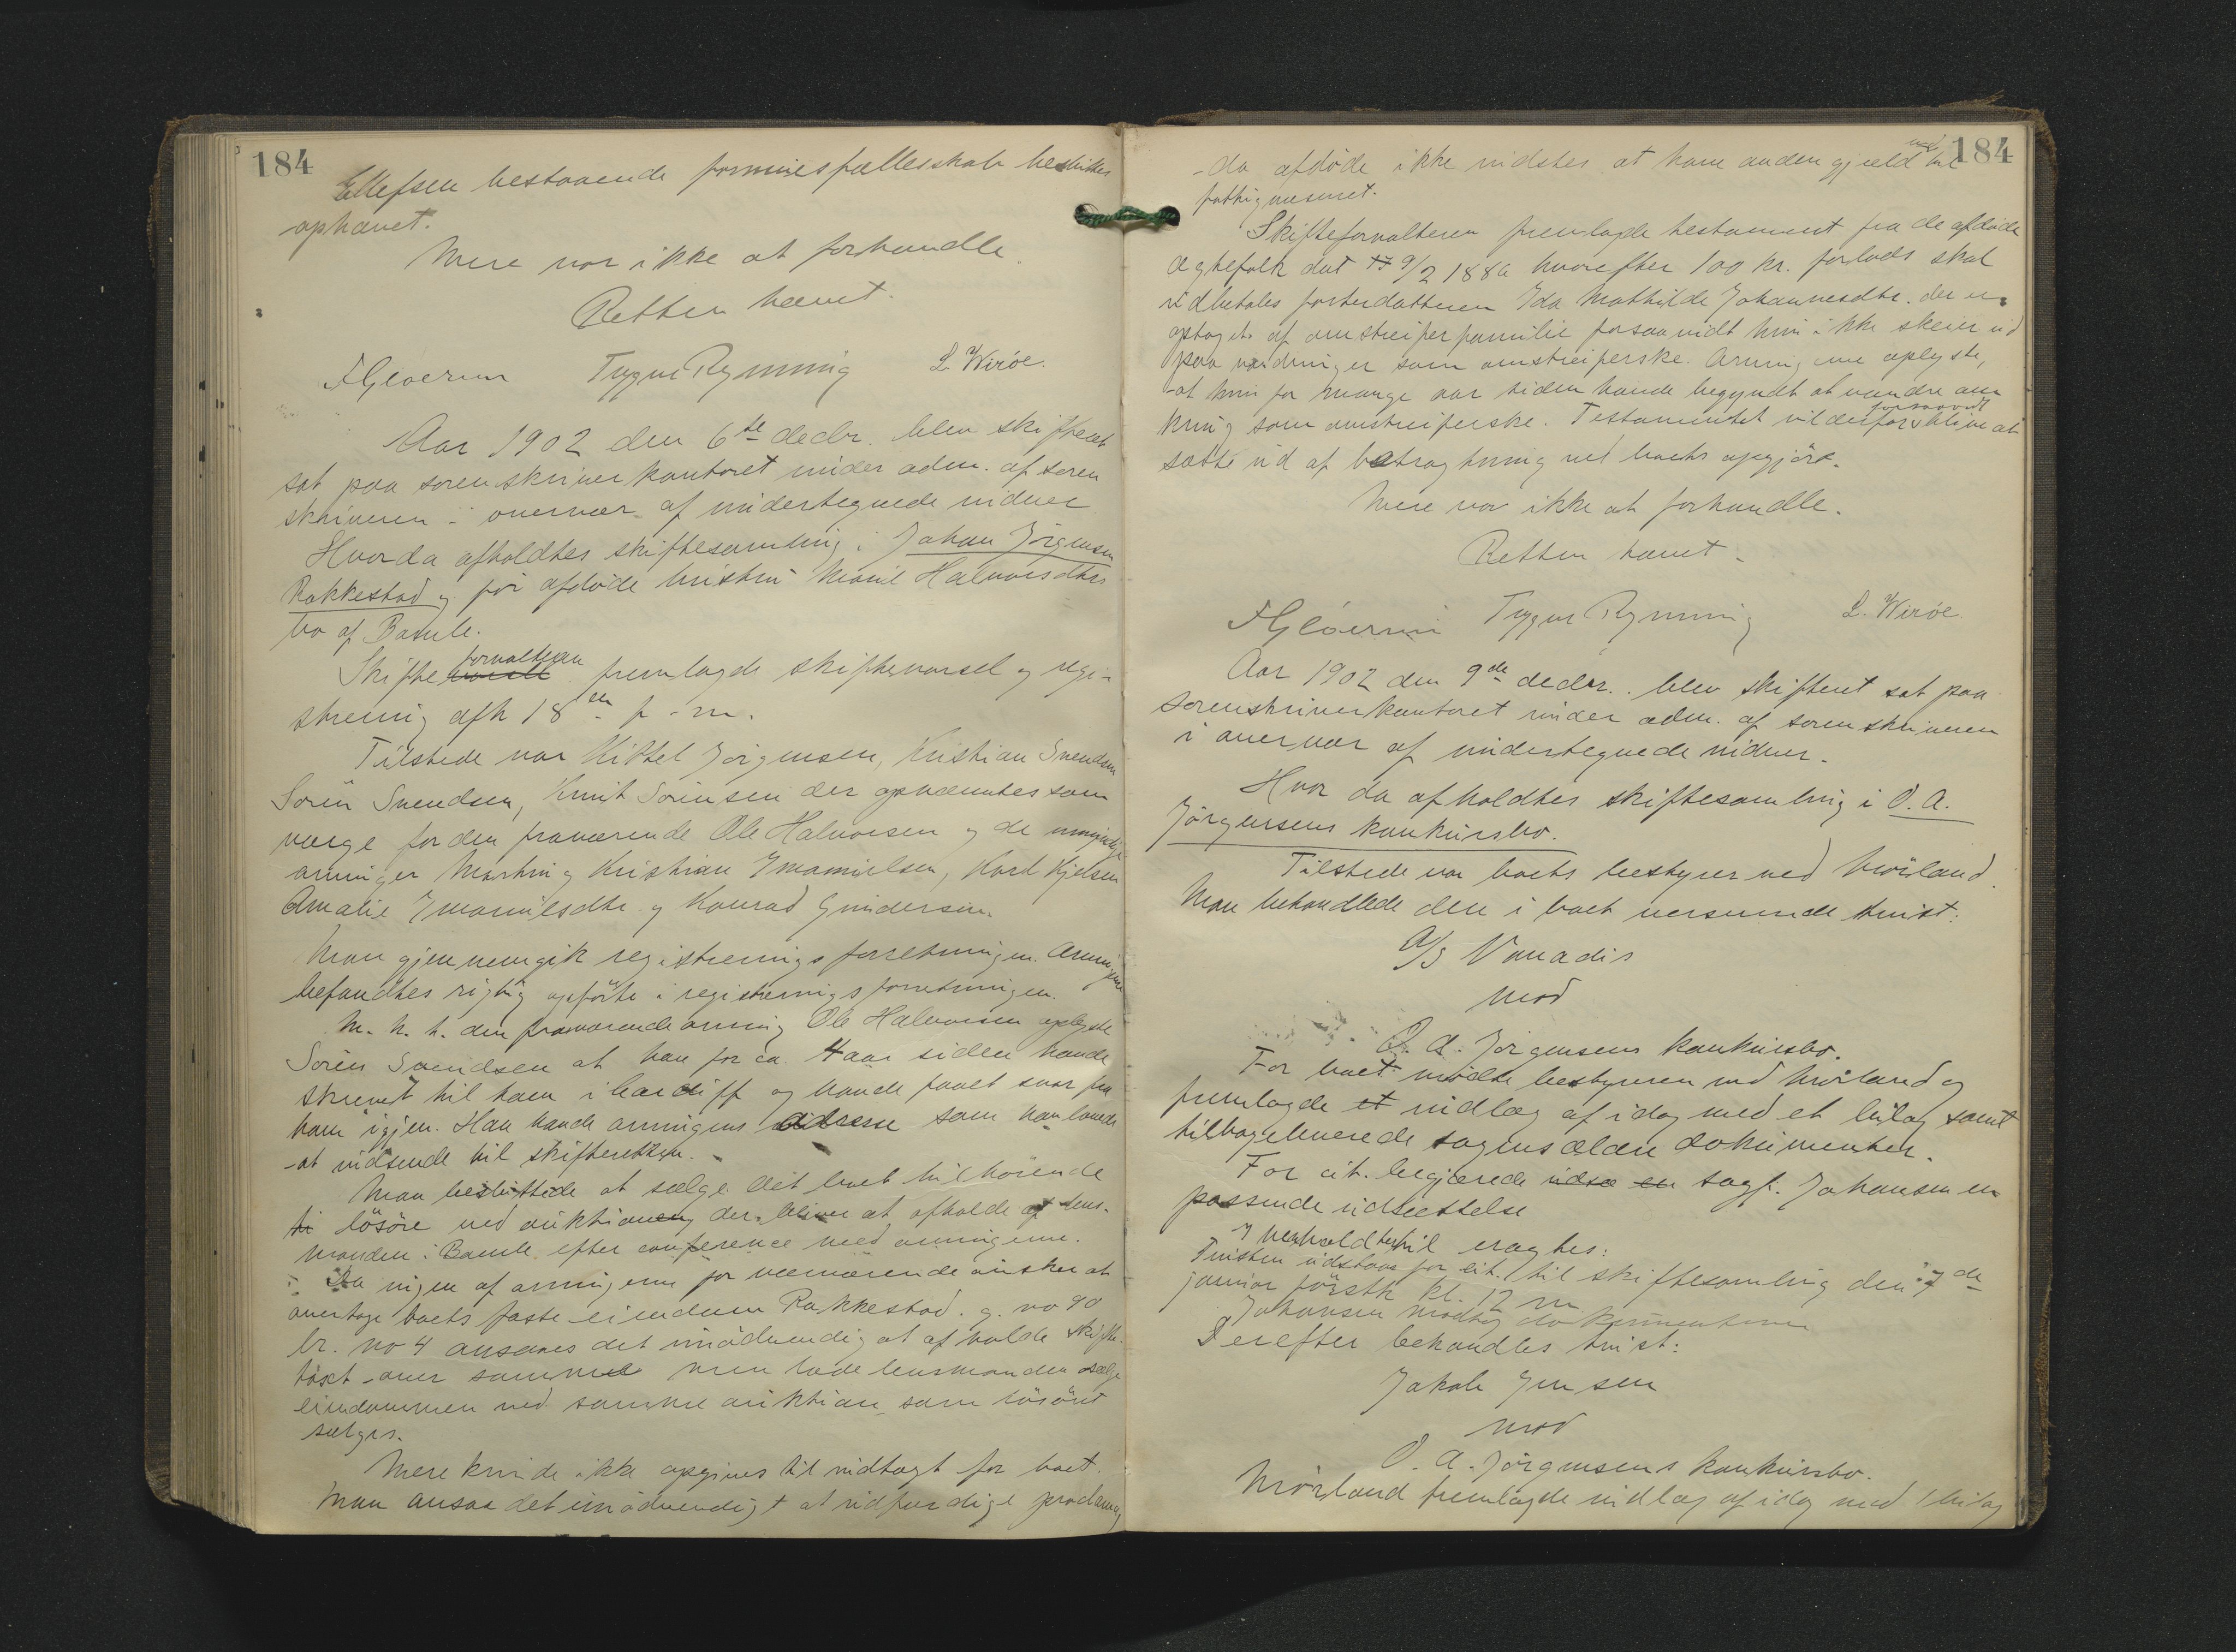 184
Ellefsen bestaaende formuesfællesskab besluttes
ophævet.
Mere var ikke at forhandle.
Retten hævet.
Trygve Rynning L. Wirøe.
Aar 1902 den 6te decbr. blev skifteret
sat paa sorenskriverkontoret under adm. af soren
skriveren i overvær af undertegnede vidner
Hvorda afholdtes skiftesamling i Johan Jörgensen
Rakkestad og før afdøde hustru Marie Halvorsdtrs
bo af Bamle.
Skifteforvalteren fremlagde skiftevarsel og regi-
strering afh 18de f. m.
Tilstede var Kittel Jörgensen, Kristian Svendsen
Sören Svendsen, Knut Sörensen der opnævntes som
værge for den fraværende Ole Halvorsen og de umyndige
arvinger Martin og Kristian Imanuelsen, Karl Kjelsen
Amalie Imanuelsdtr og Konrad Gundersen.
Man gjennemgik registreringsforretningen. Arvingerne
befandtes rigtig opförte i registreringsforretningen.
M. h. t. den fraværende arving Ole Halvorsen oplyste
Sören Svendsen at han for ca. 4 aar siden havde
skrevet til ham i Cardiff og havde faaet svar fra
ham igjen. Han havde arvingens adresse som han lovede
at indsende til skifteretten.
Man besluttede at sælge det boet tilhörende
ti lösöre ved auktionen der bliver at afholde af lens-
manden i Bamle efter conference med arvingerne.
Da ingen af arvingerne for nærværende ønsker at
overtage boets faste eiendom Rakkestad g. no 90
br. no 4 ansaaes det unödvendig at afholde skifte-
taxt over samme men lade lensmanden sælge
eiendommen ved samme auktion som lösöret
sælges.
Mere kunde ikke opgives til indtægt for boet.
Man ansaa det unödvendigt at udfærdige proclama
184
da afdöde ikke vidstes at have anden gjæld end til
fattigvæsenet.
Skifteforvalteren fremlagde testament fra de afdøde
ægtefolk dat 9/2 1886 hvorefter 100 kr. forlods skal
udbetales fosterdatteren Ida Mathilde Johannesdtr. der er
optaget af omstreiferfamilie forsaavidt hun ikke skeier ud
paa vandringer som omstreiferske. Arvingerne oplyste,
at hun for mange aar siden havde begyndt at vandre om
kring som omstreiferske. Testamentet vil derfor forsaavidt blive at
sætte ud af betragtning ved boets opgjør.
Mere var ikke at forhandle.
Retten hævet
Trygve Rynning L. Wirøe
Aar 1902 den 9de decbr. blev skifteret sat paa
sorenskriverkontoret under adm. af sorenskriveren
i overvær af undertegnede vidner.
Hvor da afholdtes skiftesamling i O. A.
Jörgensens konkursbo.
Tilstede var boets bestyrer ved Mörland.
Man behandlede den i boet verserende tvist:
A/S Vanadis
mod
O. A. Jörgensens konkursbo.
For boet mödte bestyreren ved Mörland og
fremlagde et indlæg af idag med et bilag samt
tilbageleverede sagens ældre dokumenter.
For cit. begjærede udsæ en sagf. Johansen en
passende udsættelse
I henhold hertil eragtes:
Tvisten udstaar for cit. til skiftesamling den 7de
januar förstk kl. 12 m
Johansen modtog dokumenterne
Derefter behandles tvist:
Jakob Jensen
mod
O. A. Jörgensens konkursbo.
Mörland fremlagde indlæg af idag med 1 bilag